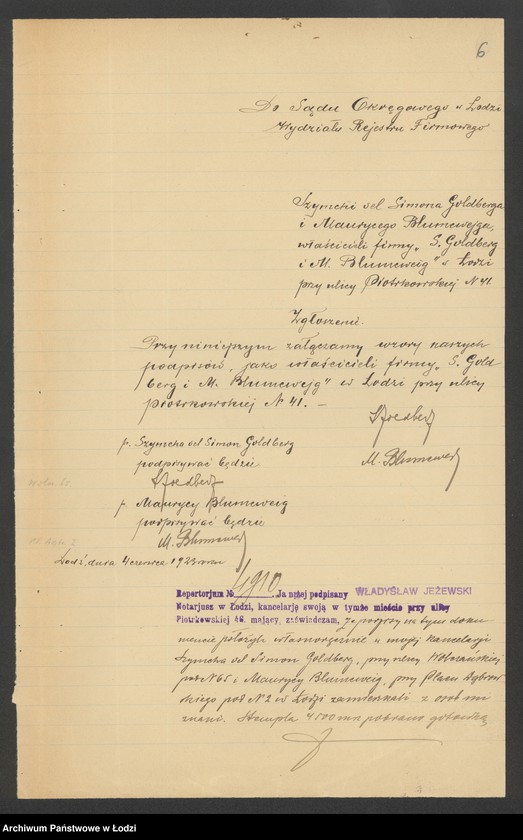 6
Do Sądu Okręgowego w Łodzi
Wydziału Rejestru Firmowego
Szymchi vel Simona Goldberga
i Maurycego Blumewejga,
właścicieli firmy „S. Goldberg
i M. Blumeweig" w Łodzi
przy ulicy Piotrkowskiej N 41.
Zgłoszenie.
Przy niniejszym załączamy wzory naszych
podpisów, jako właścicieli firmy „S. Gold-
berg i M. Blumewejg" w Łodzi przy ulicy
Piotrkowskiej N 41. –
S Goldberg
M. Blumeweig
p. Szymcha vel Simon Goldberg
podpisywać będzie
S Goldberg
p. Maurycy Blumeweig
podpisywać będzie
M. Blumeweig
Łódź, dnia 4 czerwca 1923 roku
Repertorjum № 4910. Ja niżej podpisany WŁADYSŁAW JEŻEWSKI
Notarjusz w Łodzi, kancelarję swoją w tymże mieście przy ulicy
Piotrkowskiej 46, mający, zaświadczam, że podpisy na tym doku
mencie położyli własnoręcznie w mojej kancelarji
Szymcha vel Simon Goldberg, przy ulicy Wólczańskiej
pod N 65 i Maurycy Blumeweig, przy Placu Dąbrow
skiego pod N 2 w Łodzi zamieszkali z osób mi
znani. Stempla 4500 mk pobrano gotówką
Archiwum Państwowe w Łodzi